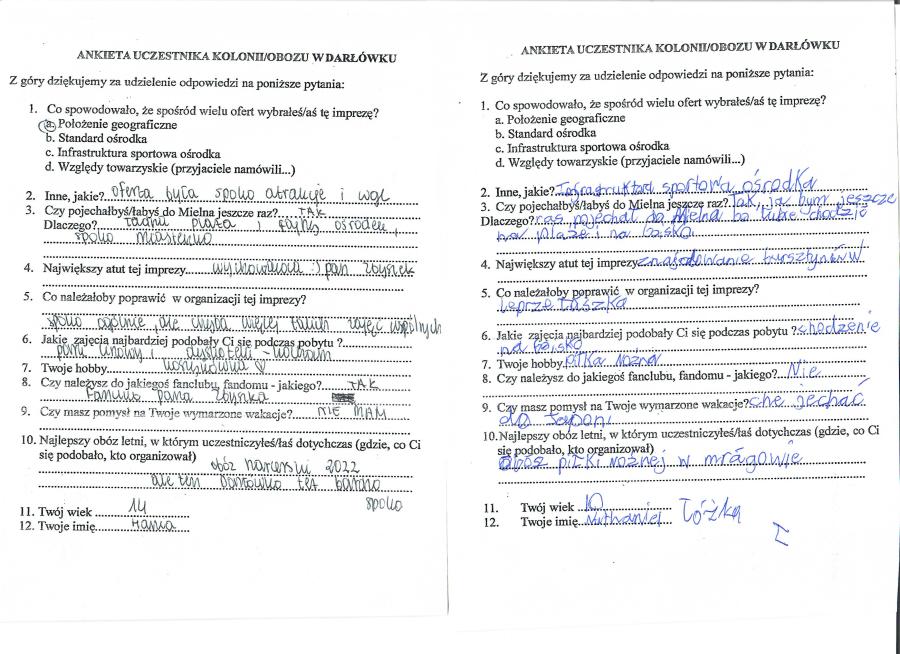 ANKIETA UCZESTNIKA KOLONII/OBOZU W DARŁÓWKU
Z góry dziękujemy za udzielenie odpowiedzi na poniższe pytania:
1. Co spowodowało, że spośród wielu ofert wybrałeś/aś tę imprezę?
a. Położenie geograficzne
b. Standard ośrodka
c. Infrastruktura sportowa ośrodka
d. Względy towarzyskie (przyjaciele namówili...)
2. Inne, jakie? oferta była spoko atrakcje i wgl
3. Czy pojechałbyś/łabyś do Mielna jeszcze raz? TAK
Dlaczego? plaża i fajny ośrodek,
spoko miasteczko
4. Największy atut tej imprezy wychowawca :) pan Zbyszek
5. Co należałoby poprawić w organizacji tej imprezy?
spoko ogólnie ale chyba więcej takich zajęć wspólnych
6. Jakie zajęcia najbardziej podobały Ci się podczas pobytu ?
park linowy i dyskoteki
7. Twoje hobby koszykówka
8. Czy należysz do jakiegoś fanclubu, fandomu - jakiego? TAK
Fanclub pana Zbyszka
9. Czy masz pomysł na Twoje wymarzone wakacje? NIE MAM
10. Najlepszy obóz letni, w którym uczestniczyłeś/łaś dotychczas (gdzie, co Ci
się podobało, kto organizował)
obóz harcerski 2022
ale ten Darłówko też bardzo
spoko
11. Twój wiek 14
12. Twoje imię Hania
ANKIETA UCZESTNIKA KOLONII/OBOZU W DARŁÓWKU
Z góry dziękujemy za udzielenie odpowiedzi na poniższe pytania:
1. Co spowodowało, że spośród wielu ofert wybrałeś/aś tę imprezę?
a. Położenie geograficzne
b. Standard ośrodka
c. Infrastruktura sportowa ośrodka
d. Względy towarzyskie (przyjaciele namówili...)
2. Inne, jakie? Infrastruktura sportowa ośrodka
3. Czy pojechałbyś/łabyś do Mielna jeszcze raz? Tak, ja bym jeszcze
Dlaczego? ras pojechał do Mielna bo lubie chodzić
na plaże i na boisko
4. Największy atut tej imprezy znajdowanie bursztynów
5. Co należałoby poprawić w organizacji tej imprezy?
leprze łuszka
6. Jakie zajęcia najbardziej podobały Ci się podczas pobytu ? chodzenie
na boisko
7. Twoje hobby piłka nożna
8. Czy należysz do jakiegoś fanclubu, fandomu - jakiego? Nie
9. Czy masz pomysł na Twoje wymarzone wakacje? che jechać
do
10. Najlepszy obóz letni, w którym uczestniczyłeś/łaś dotychczas (gdzie, co Ci
się podobało, kto organizował)
obós piłki nożnej w mrągowie
11. Twój wiek 10
12. Twoje imię Nathaniel łóżka